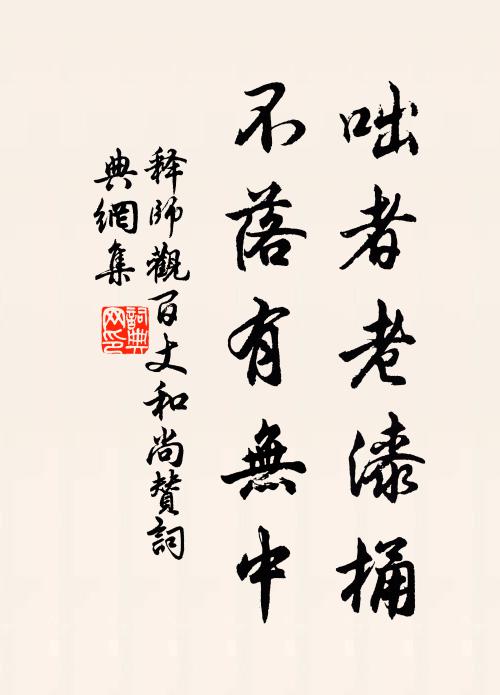 咄者老漆桶
不落有無中
释師觀百丈和尚贊詞
典網集
詞典网印